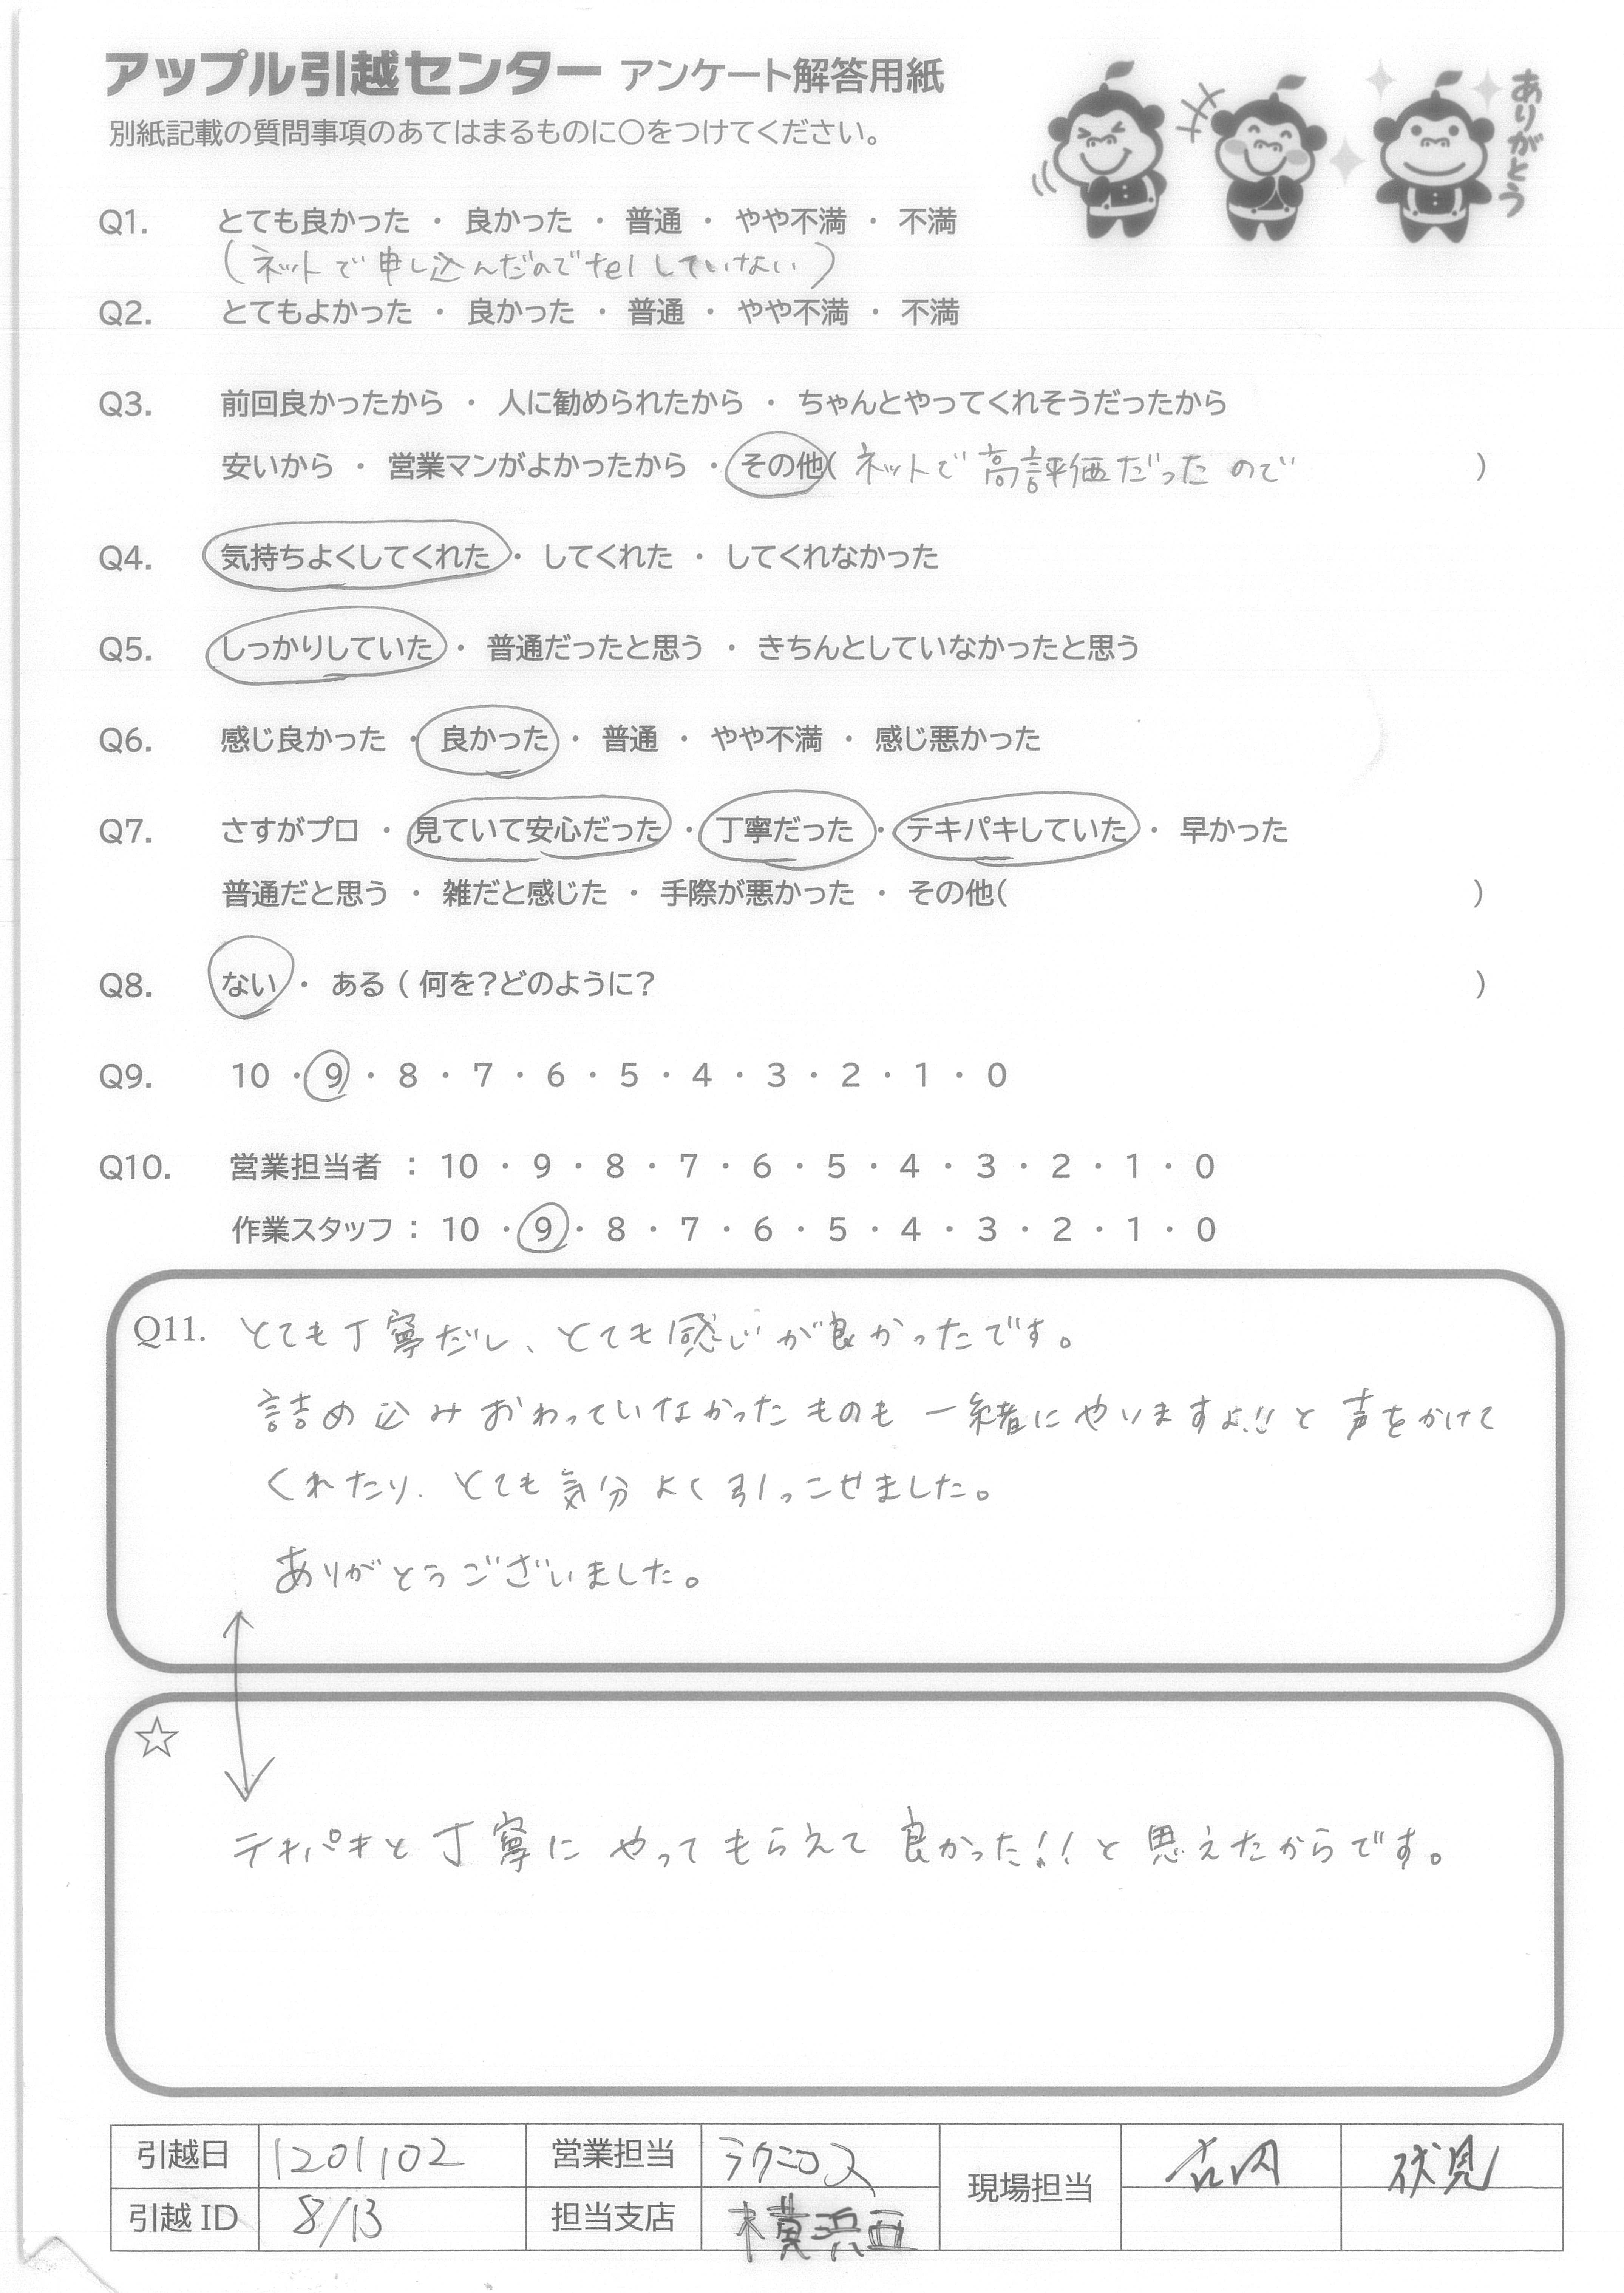 アップル引越センター アンケート解答用紙
別紙記載の質問事項のあてはまるものに〇をつけてください。
ありがとう
Q1. とても良かった ・ 良かった ・ 普通 ・ やや不満 ・ 不満
(ネットで申し込んだのでtelしていない)
Q2. とてもよかった ・ 良かった ・ 普通 ・ やや不満 ・ 不満
Q3. 前回良かったから ・ 人に勧められたから ・ ちゃんとやってくれそうだったから
安いから ・ 営業マンがよかったから ・ その他( ネットで高評価だったので )
Q4. 気持ちよくしてくれた ・ してくれた ・ してくれなかった
Q5. しっかりしていた ・ 普通だったと思う ・ きちんとしていなかったと思う
Q6. 感じ良かった ・ 良かった ・ 普通 ・ やや不満 ・ 感じ悪かった
Q7. さすがプロ ・ 見ていて安心だった ・ 丁寧だった ・ テキパキしていた ・ 早かった
普通だと思う ・ 雑だと感じた ・ 手際が悪かった ・ その他( )
Q8. ない ・ ある ( 何を?どのように? )
Q9. 10 ・ 9 ・ 8 ・ 7 ・ 6 ・ 5 ・ 4 ・ 3 ・ 2 ・ 1 ・ 0
Q10. 営業担当者 : 10 ・ 9 ・ 8 ・ 7 ・ 6 ・ 5 ・ 4 ・ 3 ・ 2 ・ 1 ・ 0
作業スタッフ : 10 ・ 9 ・ 8 ・ 7 ・ 6 ・ 5 ・ 4 ・ 3 ・ 2 ・ 1 ・ 0
Q11. とても丁寧だし、とても感じが良かったです。
詰め込みおわっていなかったものも一緒にやいますよ!!と声をかけて
くれたり、とても気分よく引っこせました。
ありがとうございました。
☆
テキパキと丁寧にやってもらえて良かった!!と思えたからです。
引越日 1201102 営業担当 ラクニコス 現場担当 古内 伏見
引越 ID 8/13 担当支店 横浜西